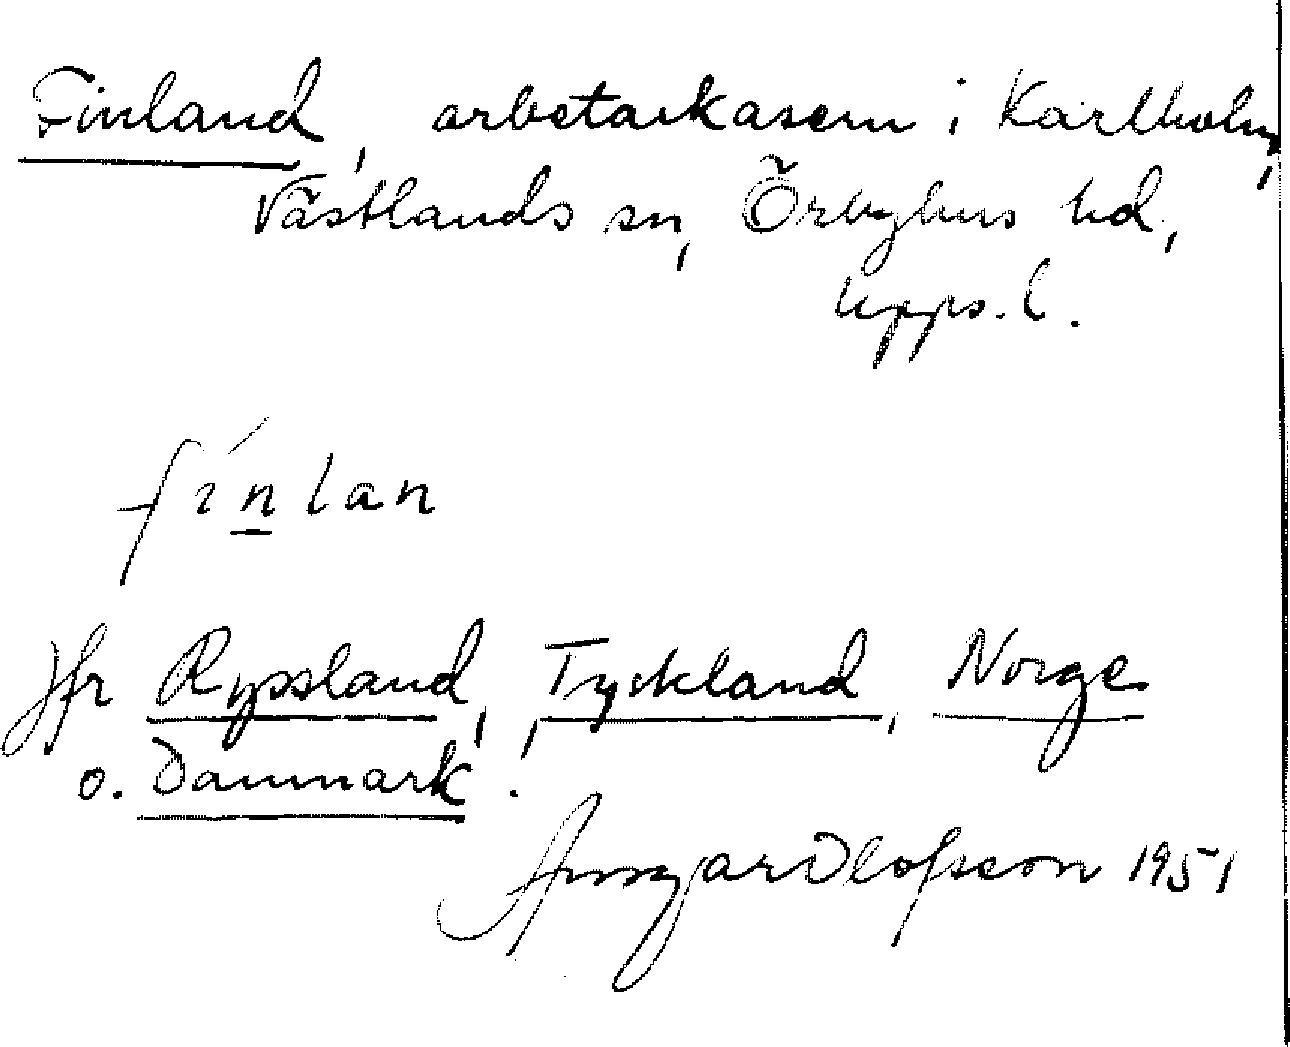 Finland, arbetarkasern i Karlholm,
Västlands sn, Örbyhus hd,
Upps. l.
fínlan
Jfr Ryssland, Tyskland, Norge
o. Danmark.
Ansgar Olofsson 1951